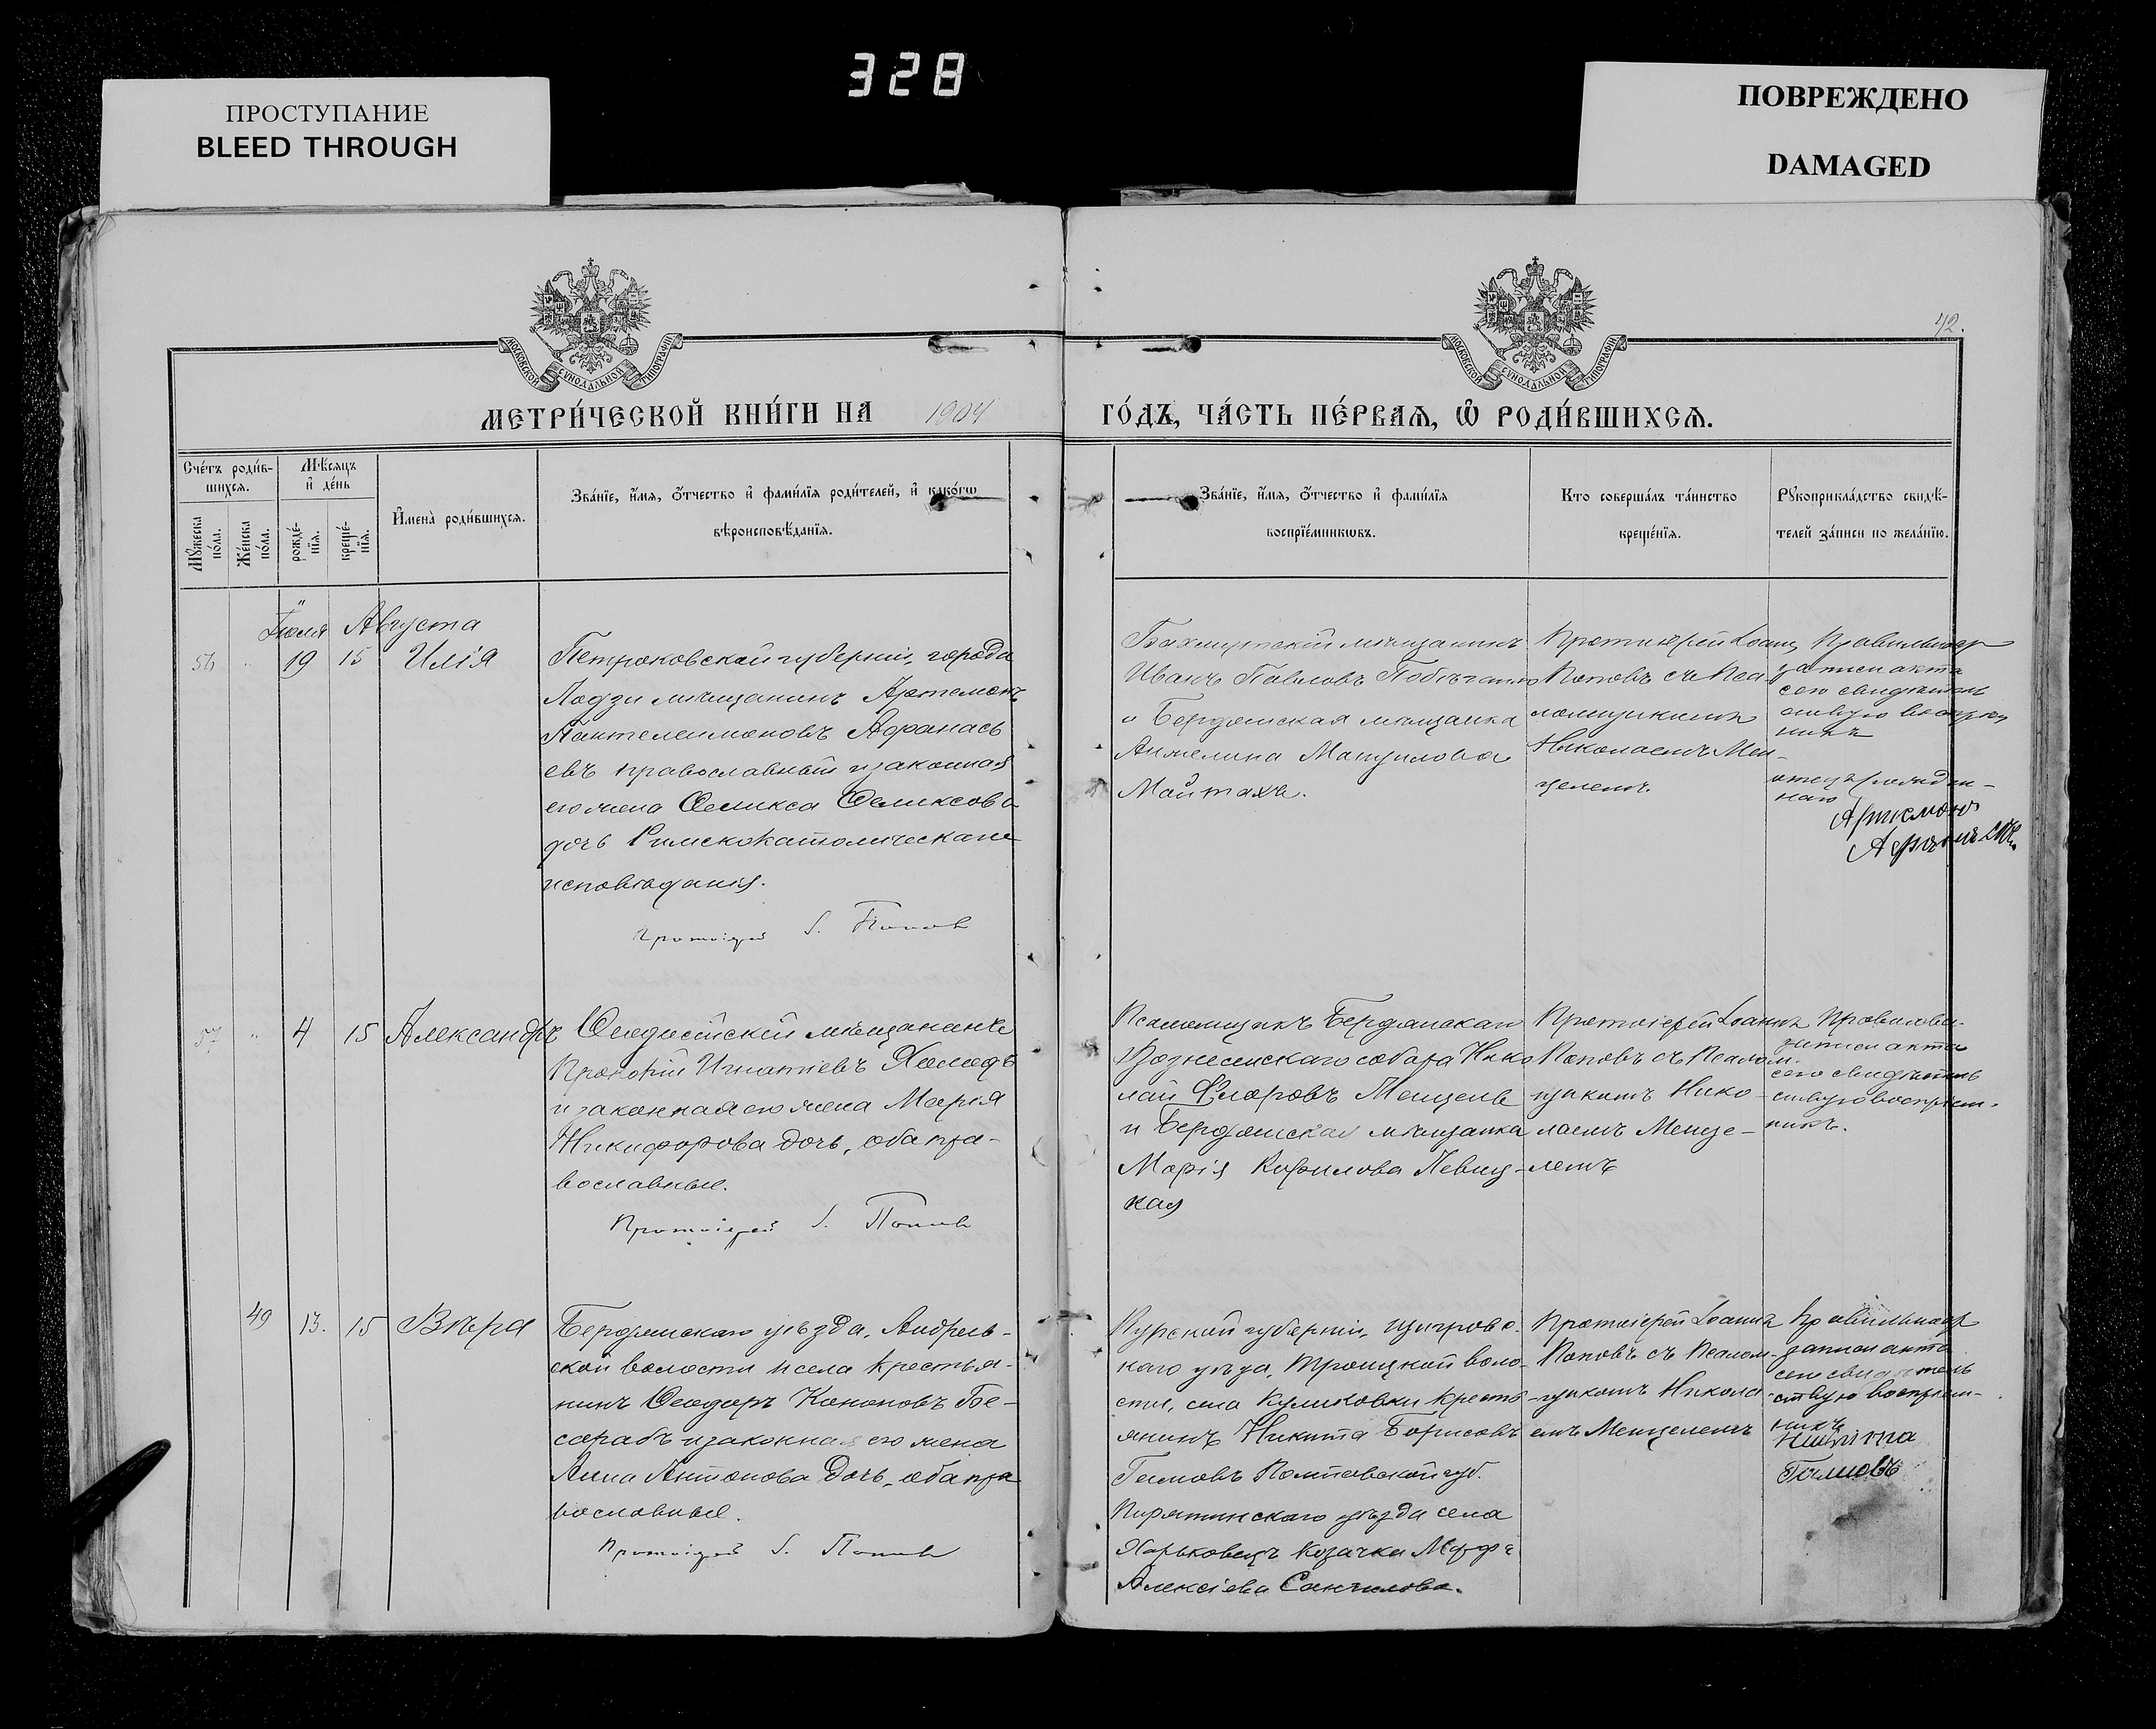 328
ПРОСТУПАНИЕ
BLEED THROUGH
ПОВРЕЖДЕНО
DAMAGED
МОСКОВСКОЙ СѴНОДАЛЬНОЙ ТИПОГРАФІИ
МОСКОВСКОЙ СѴНОДАЛЬНОЙ ТИПОГРАФІИ
42.
МЕТРИ́ЧЕСКОЙ КНИ́ГИ НА 1904
ГО́ДЪ, ЧА́СТЬ ПЕ́РВАѦ, Ѽ РОДИ́ВШИХСѦ.
Сче́тъ роди́в-
шихсѧ.
Мѣ́сѧцъ
и҆ де́нь
Мꙋ́жеска
по́ла.
Же́нска
по́ла.
рожде́-
нїѧ.
креще́-
нїѧ.
И҆мена̀ роди́вшихсѧ.
Зва́нїе, и҆́мѧ, ѻ҆́тчество и҆ фами́лїѧ роди́телей, и҆ како́гѡ
вѣроисповѣ́данїѧ.
Зва́нїе, и҆́мѧ, ѻ҆́тчество и҆ фами́лїѧ
воспрїе́мникѡвъ.
Кто соверша́лъ та́инство
креще́нїѧ.
Рꙋкоприкла́дство свидѣ́-
телей за́писи по жела́нїю.
Іюля Августа
56 " 19 15 Илія
Петроковской губерніи, города
Лодзи мѣщанинъ Артемонъ
Пантелеимоновъ Афанась
евъ православный и законная
его жена Феликса Феликсова
дочь Римскокатолическаго
исповѣданія.
Протоіерей І. Попов
Бахмутскій мѣщанинъ
Иванъ Павловъ
и Бердянская мѣщанка
Анжелина
Майтахъ.
Протоіерей Іоаннъ
Поповъ съ Пса-
ломщикомъ
Николаемъ Мен-
целемъ.
Правильность
записи акта
сего свидѣтель
ствую
отецъ
Артемонъ
57 " 4 15 Александръ
Феодосійскій мѣщанинъ
Прокофій Игнатіевъ
и законная его жена Марія
Никифорова дочь, оба пра-
вославные.
Протоіерей І. Попов
Псаломщикъ Бердянскаго
Вознесенскаго собора Нико
лай Менцель
и Бердянская мѣщанка
Марія Кирилова Левиц-
кая
Протоіерей Іоаннъ
Поповъ съ Псалом
щикомъ Нико-
лаемъ Менце-
лемъ
записи акта
сего свидѣтель
ствую воспріем-
никъ.
49 13. 15 Вѣра
Бердянскаго уѣзда, Андреев-
ской волости и села крестья-
нинъ Феодоръ Кононовъ Бе-
сарабъ и законная его жена
Анна Антонова дочь, оба пра
вославные.
Протоіерей І. Попов
Курской губерніи, Щигров-
скаго уѣзда, Троицкой воло-
сти, села Куликовки кресть-
янинъ Никита Борисовъ
Полтавской губ.
Пирятинскаго уѣзда села
Харьковецъ козачка Марфа
Алексіева
Протоіерей Іоаннъ
Поповъ съ Псалом-
щикомъ Никола
емъ Менцелемъ
Правильность
записи акта
сего свидѣтель
ствую воспріем-
никъ
Никита